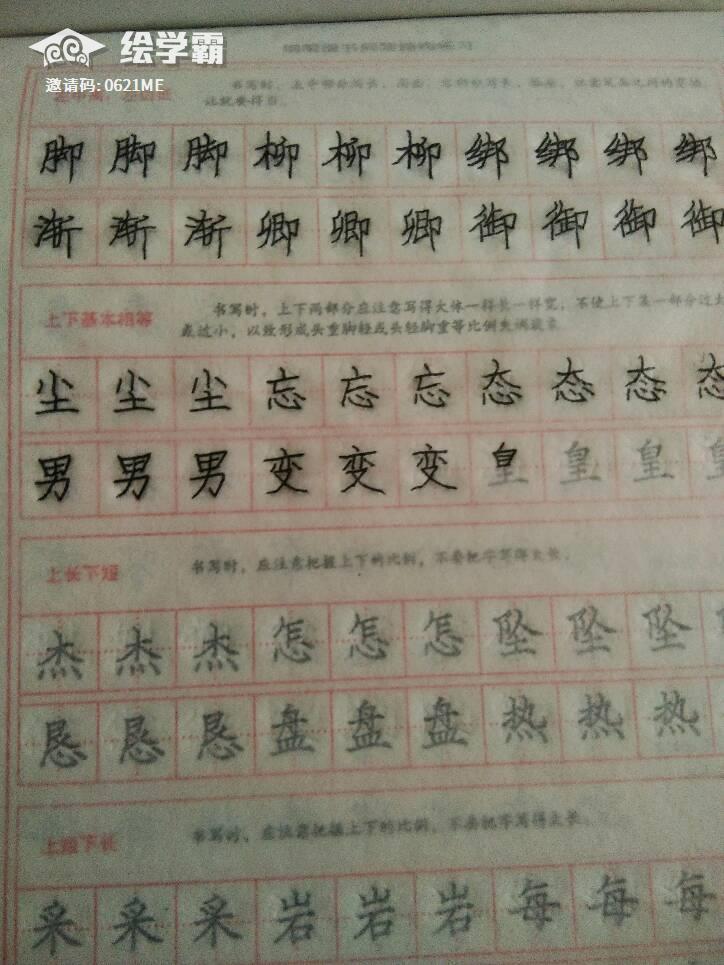 绘学霸
邀请码: 0621ME
脚 脚 脚 柳 柳 柳 绑 绑 绑 绑
渐 渐 渐 卿 卿 卿 御 御 御 御
上下基本相等
书写时，上下两部分应注意写得大体一样长一样宽，不使上下某一部分过大
或过小，以致形成头重脚轻或头轻脚重等比例失调现象
尘 尘 尘 忘 忘 忘 态 态 态 态
男 男 男 变 变 变 皇 皇 皇 皇
上长下短
书写时，应注意把握上下的比例，不要把字写得太长。
杰 杰 杰 怎 怎 怎 坠 坠 坠
恳 恳 恳 盘 盘 盘 热 热 热
上短下长
书写时，应注意把握上下的比例，不要把字写得太长。
采 采 采 岩 岩 岩 每 每 每